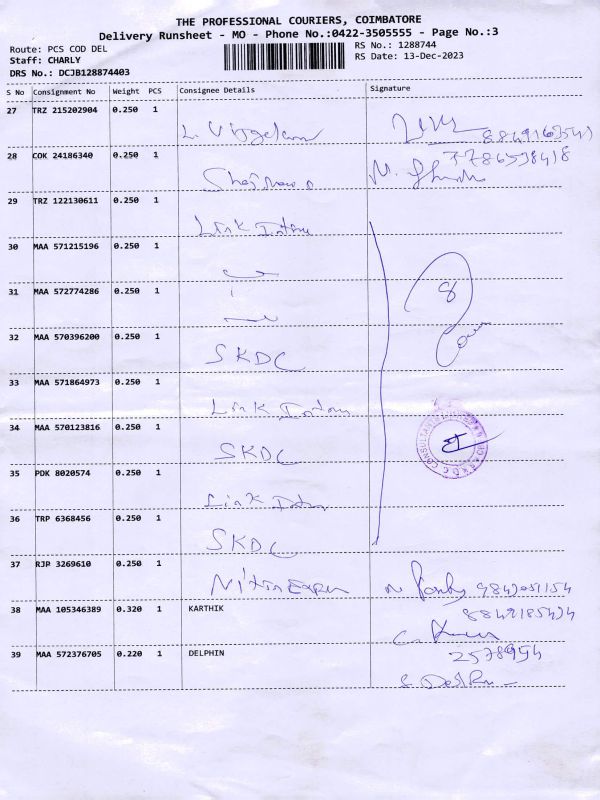 THE PROFESSIONAL COURIERS, COIMBATORE
Delivery Runsheet - MO - Phone No.:0422-3505555 - Page No.:3
Route: PCS COD DEL
Staff: CHARLY
DRS No.: DCJB128874403
RS No.: 1288744
RS Date: 13-Dec-2023
S No Consignment No Weight PCS Consignee Details Signature
27 TRZ 215202904 0.250 1
28 COK 24186340 0.250 1
29 TRZ 122130611 0.250 1
Link
30 MAA 571215196 0.250 1
31 MAA 572774286 0.250 1
8
32 MAA 570396200 0.250 1
SKDC
33 MAA 571864973 0.250 1
Link
34 MAA 570123816 0.250 1
SKDC
35 PDK 8020574 0.250 1
Link
36 TRP 6368456 0.250 1
SKDC
37 RJP 3269610 0.250 1
38 MAA 105346389 0.320 1 KARTHIK
39 MAA 572376705 0.220 1 DELPHIN